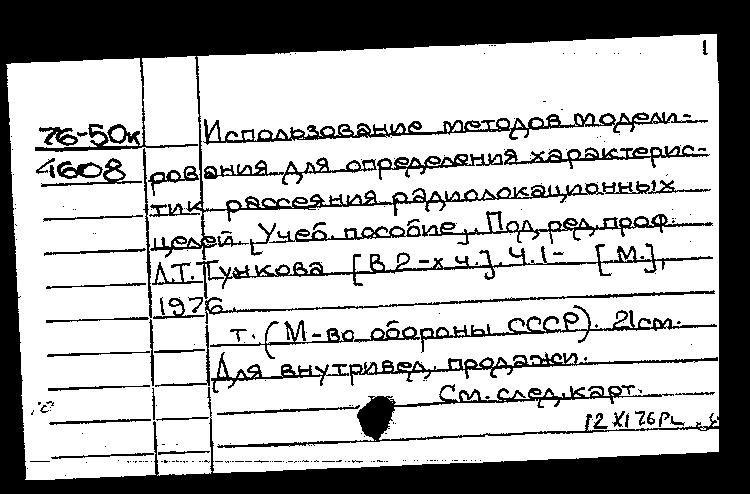 1
76-50к Использование методов модели-
4608 рования для определения характерис-
тик рассеяния радиолокационных
целей. [Учеб. пособие]. Под ред. проф.
Л.Т. Тучкова [В 2-х ч.]. Ч. 1- [М.],
1976.
т. (М-во обороны СССР). 21см.
Для внутривед. продажи.
См. след. карт.
12 XI 76